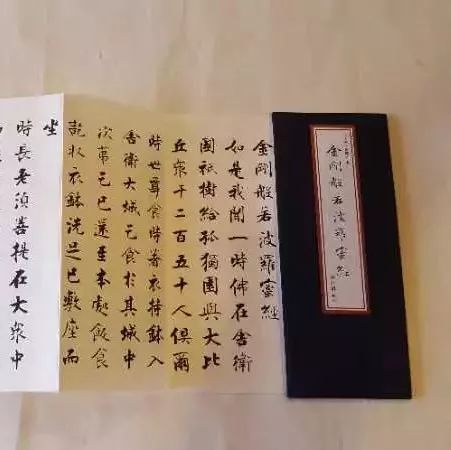 金剛般若波羅蜜經
金剛般若波羅蜜經
如是我聞一時佛在舍衛
國祇樹給孤獨園與大比
丘眾千二百五十人俱爾
時世尊食時著衣持鉢入
舍衛大城乞食於其城中
次第乞已還至本處飯食
訖收衣鉢洗足已敷座而
坐
時長老須菩提在大眾中